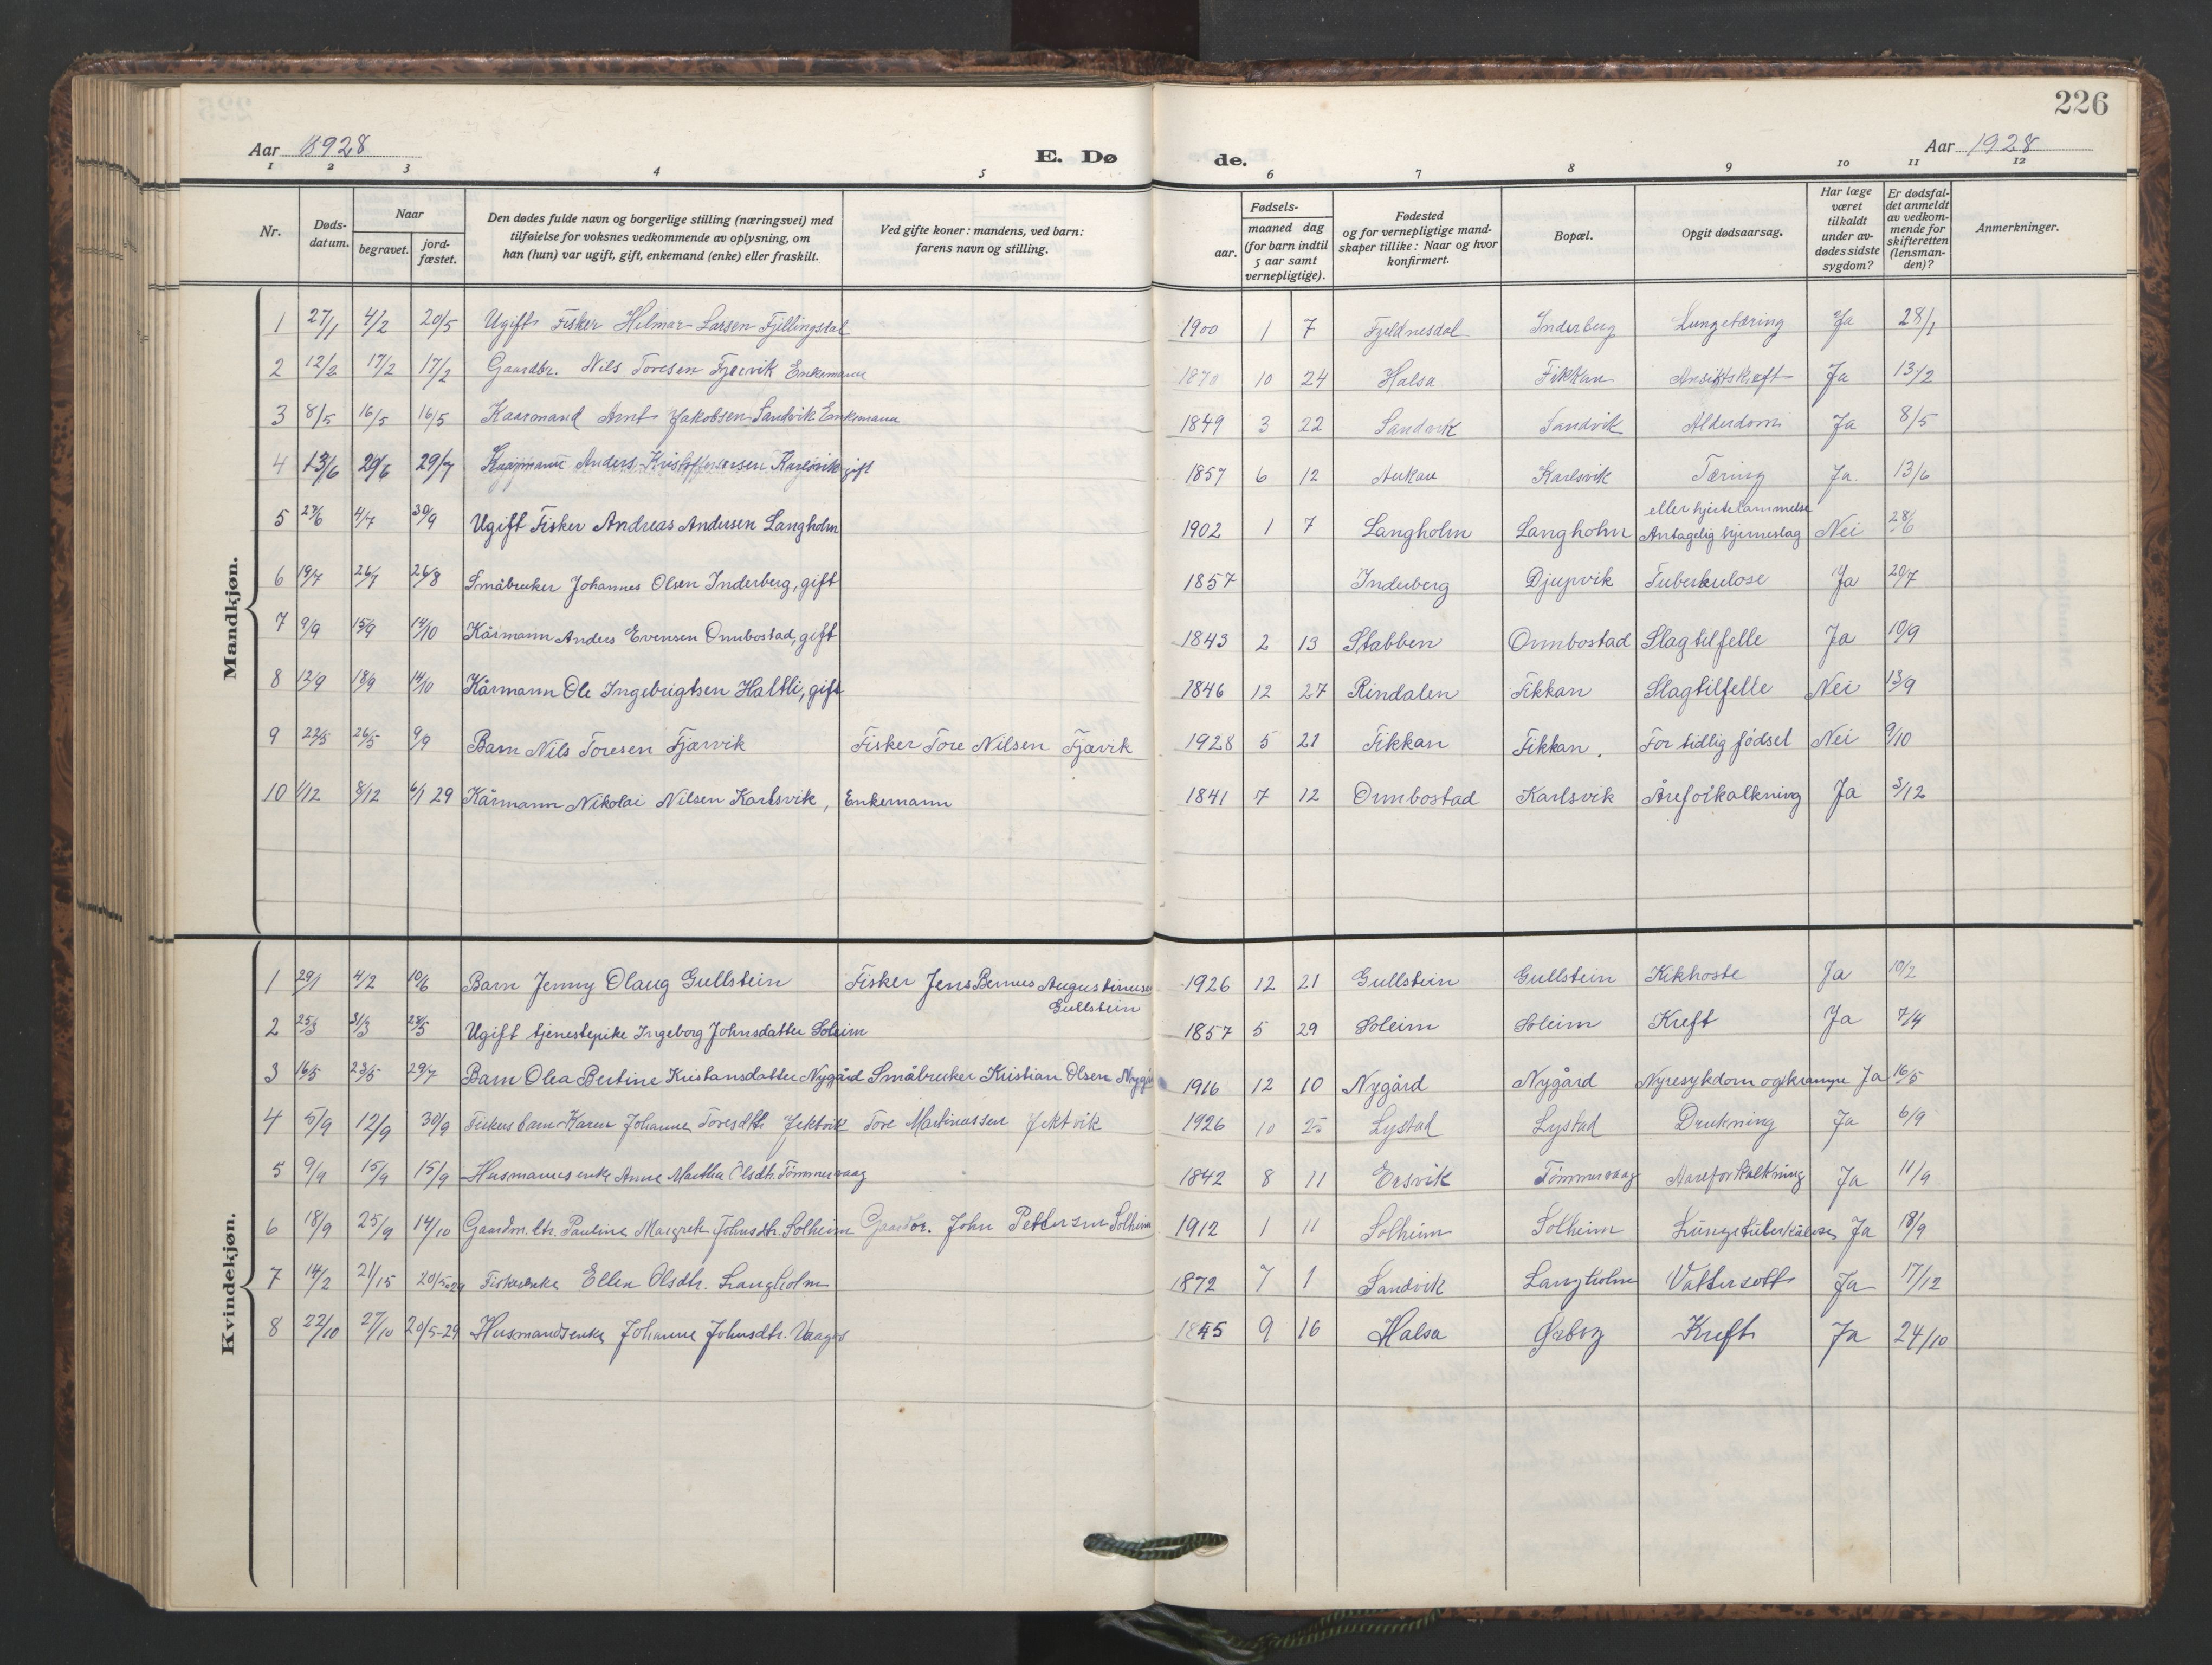 226
Aar 1928
E. Dø
de.
Aar 1928
1 2 3 4 5 6 7 8 9 10 11 12
Nr.
Døds-datum.
Naar
begravet.
jord-fæstet.
Den dødes fulde navn og borgerlige stilling (næringsvei) med
tilføielse for voksnes vedkommende av oplysning, om
han (hun) var ugift, gift, enkemand (enke) eller fraskilt.
Ved gifte koner: mandens, ved barn:
farens navn og stilling.
Fødsels-
aar.
maaned dag
(for barn indtil
5 aar samt
vernepligtige).
Fødested
og for vernepligtige mand-
skaper tillike: Naar og hvor
konfirmert.
Bopæl.
Opgit dødsaarsag.
Har læge
været
tilkaldt
under av-
dødes sidste
sygdom?
Er dødsfal-
det anmeldt
av vedkom-
mende for
skifteretten
(lensman-
den)?
Anmerkninger.
Mandkjøn.
1 27/1 4/2 20/5 Ugift Fisker Hilmar Larsen Fjellingsdal 1900 1 7 Fjeldnesdal Inderberg Lungetæring Ja 28/1
2 12/2 17/2 17/2 Gaardbr. Nils Toresen Fjærvik Enkemann 1870 10 24 Halsa Fikkan Ansiktskræft Ja 13/2
3 8/5 16/5 16/5 Kaarmand Arnt Jakobsen Sandvik Enkemann 1849 3 22 Sandvik Sandvik Alderdom Ja 8/5
4 13/6 20/6 29/7 Kaarmann Anders Kristoffersen Karlsvik gift 1857 6 12 Aukan Karlsvik Tæring Ja. 13/6
5 4/7 30/9 Ugift Fisker Andreas Andersen Langholm 1902 1 7 Langholm Langholm Antagelig hjerneslag eller hjertelammelse Nei 28/6
6 19/7 26/7 26/8 Småbruker Johannes Olsen Inderberg, gift 1857 Inderberg Djupvik Tuberkulose Ja 20/7
7 9/9 15/9 14/10 Kårmann Anders Evensen Ormbostad, gift 1843 2 13 Stabben Ormbostad Slagtilfelle Ja 10/9
8 12/9 18/9 14/10 Kårmann Ole Ingebrigtsen Haltli, gift 1846 12 27 Rindalen Fikkan Slagtilfelle Nei 13/9
9 22/5 26/5 9/9 Barn Nils Toresen Fjærvik Fisker Tore Nilsen Fjærvik 1928 5 21 Fikkan Fikkan. For tidlig fødsel Nei 9/10
10 1/12 8/12 6/1 29 Kårmann Nikolai Nilsen Karlsvik, Enkemann 1841 7 12 Ormbostad Karlsvik Åreforkalkning Ja 3/12
Kvindekjøn.
1 29/1 4/2 10/6 Barn Jenny Olaug Gullstein Fisker Jens Bernus Augustinusen Gullstein 1926 12 21 Gullstein Gullstein Kikhoste Ja 10/2
2 25/3 31/3 28/5 Ugift tjenestepike Ingeborg Johnsdatter Soleim 1857 5 29 Soleim Soleim Kreft Ja 7/4
3 16/5 23/5 29/7 Barn Olea Bertine Kristansdatter Nygård Småbruker Kristian Olsen Nygå 1916 12 10 Nygård Nygård Nyresykdom og krampe Ja 16/5
4 5/9 12/9 30/9 Fiskers barn Karen Johanne Toresdtr Jektvik Tore Martinussen Jektvik 1926 10 25 Lystad Lystad Drukning Ja 6/9
5 9/9 15/9 15/9 Husmannsenke Anne Martha Olsdtr. Tømmervaag 1842 8 11 Ersvik Tømmervaag Aareforkalkning Ja 11/9
6 18/9 25/9 14/10 Gaardm. dtr. Pauline Margrete Johnsdtr. Solheim Gaardbr. John Pettersen Solheim 1912 1 11 Solheim Solheim Lungetuberkulose Ja 18/9
7 14/2 21/15 20/5-29 Fiskerenke Ellen Olsdtr. Langholm 1872 7 1 Sandvik Langholm Vattersott Ja 17/12
8 22/10 27/10 20/5-29 Husmandsenke Johanne Johnsdtr. Vaagos 1845 9 16 Halsa Ørbog Kreft Ja 24/10